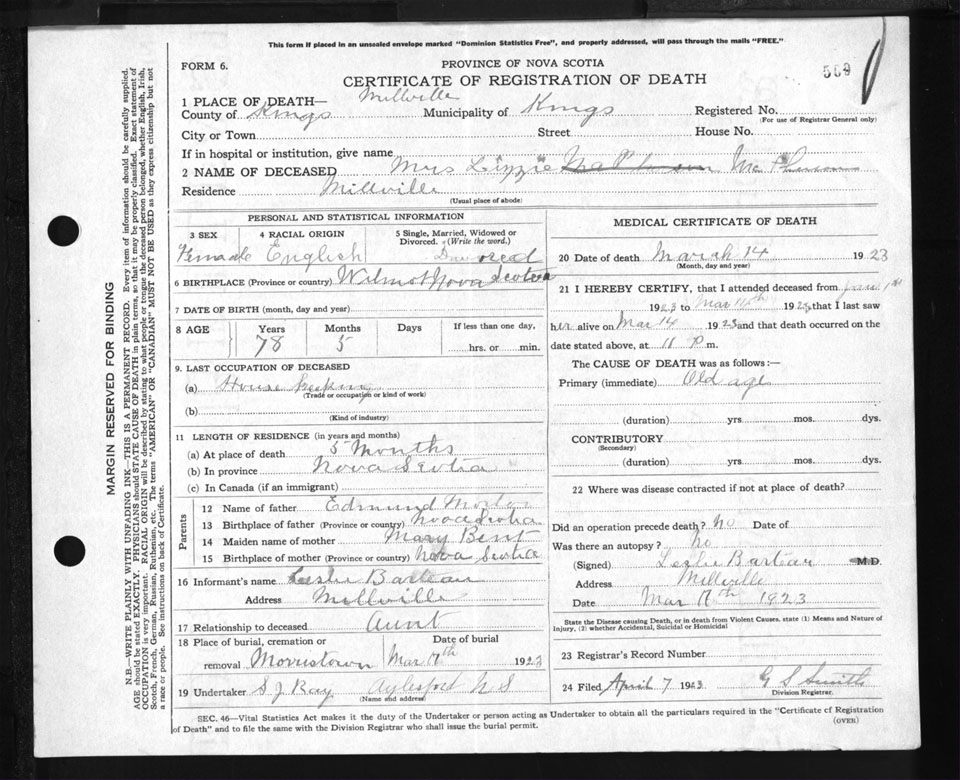 This form if placed in an unsealed envelope marked "Dominion Statistics Free", and properly addressed, will pass through the mails "FREE."
FORM 6.
PROVINCE OF NOVA SCOTIA
569
CERTIFICATE OF REGISTRATION OF DEATH
1 PLACE OF DEATH— Millville
County of Kings Municipality of Kings Registered No.
(For use of Registrar General only)
City or Town Street House No.
If in hospital or institution, give name
2 NAME OF DECEASED Mrs Lizzie McPherson
Residence Millville
(Usual place of abode)
PERSONAL AND STATISTICAL INFORMATION
3 SEX 4 RACIAL ORIGIN 5 Single, Married, Widowed or Divorced. (Write the word.)
Female English Divorced
6 BIRTHPLACE (Province or country) Wilmot Nova Scotia
7 DATE OF BIRTH (month, day and year)
8 AGE Years Months Days If less than one day,
78 5 hrs. or min.
9. LAST OCCUPATION OF DECEASED
(a) House keeping
(Trade or occupation or kind of work)
(b)
(Kind of industry)
11 LENGTH OF RESIDENCE (in years and months)
(a) At place of death 5 Months
(b) In province Nova Scotia
(c) In Canada (if an immigrant)
Parents
12 Name of father Edmund
13 Birthplace of father (Province or country) Nova Scotia
14 Maiden name of mother Mary Bent
15 Birthplace of mother (Province or country) Nova Scotia
16 Informant's name Leslie Barteau
Address Millville
17 Relationship to deceased Aunt
18 Place of burial, cremation or removal Morristown
Date of burial Mar 17th 1923
19 Undertaker S J Ray Aylesford N S
(Name and address)
MEDICAL CERTIFICATE OF DEATH
20 Date of death March 14 1923
(Month, day and year)
21 I HEREBY CERTIFY, that I attended deceased from
1923 to Mar 14th 1923, that I last saw
her alive on Mar 14 1923 and that death occurred on the
date stated above, at 11 P m.
The CAUSE OF DEATH was as follows:—
Primary (immediate) Old age
(duration) yrs. mos. dys.
CONTRIBUTORY
(Secondary)
(duration) yrs. mos. dys.
22 Where was disease contracted if not at place of death?
Did an operation precede death? No Date of
Was there an autopsy? No
(Signed) Leslie Barteau M.D.
Address Millville
Date Mar 17th 1923
State the Disease causing Death, or in death from Violent Causes, state (1) Means and Nature of Injury, (2) whether Accidental, Suicidal or Homicidal
23 Registrar's Record Number
24 Filed April 7 1923 G S Smith
Division Registrar.
SEC. 46—Vital Statistics Act makes it the duty of the Undertaker or person acting as Undertaker to obtain all the particulars required in the "Certificate of Registration
of Death" and to file the same with the Division Registrar who shall issue the burial permit.
(OVER)
MARGIN RESERVED FOR BINDING
N.B.—WRITE PLAINLY WITH UNFADING INK—THIS IS A PERMANENT RECORD. Every item of information should be carefully supplied.
AGE should be stated EXACTLY. PHYSICIANS should STATE CAUSE OF DEATH in plain terms, so that it may be properly classified. Exact statement of
OCCUPATION is very important. RACIAL ORIGIN will be described by stating to what people or tongue the deceased person belonged, whether English, Irish,
Scotch, French, German, Russian, Ruthenian, etc. The terms "AMERICAN" OR "CANADIAN" MUST NOT BE USED as they express citizenship but not
a race or people. See instructions on back of Certificate.